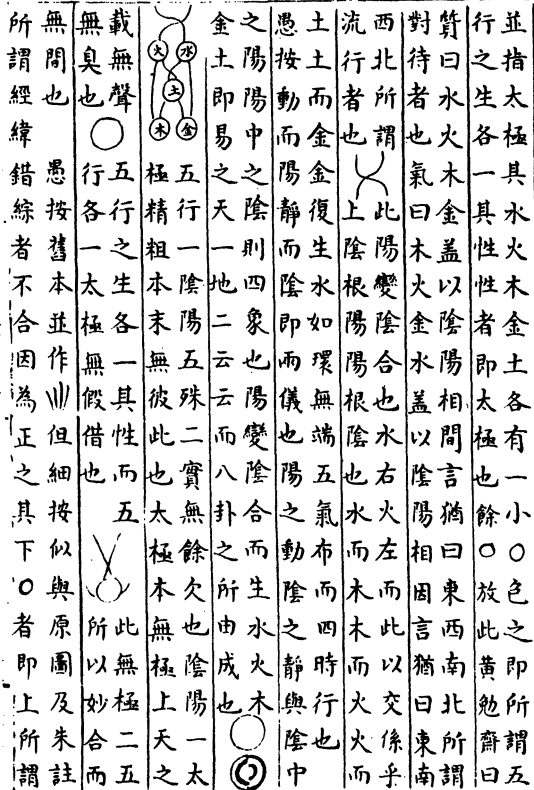 並指太極具水火木金土各有一小〇色之即所謂五
行之生各一其性性者即太極也餘〇放此黃勉齋曰
質曰水火木金盖以陰陽相間言猶曰東西南北所謂
對待者也氣曰木火金水盖以陰陽相因言猶曰東南
西北所謂
流行者也
此陽變陰合也水右火左而此以交係乎
上陰根陽陽根陰也水而木木而火火而
土土而金金復生水如環無端五氣布而四時行也
愚按動而陽靜而陰即兩儀也陽之動陰之靜與陰中
之陽陽中之陰則四象也陽變陰合而生水火木
金土即易之天一地二云云而八卦之所由成也
水
火
土
金
木
五行一陰陽五殊二實無餘欠也陰陽一太
極精粗本末無彼此也太極本無極上天之
載無聲
無臭也
五行之生各一其性而五
行各一太極無假借也
此無極二五
所以妙合而
無間也
愚按舊本並作但細按似與原圖及朱註
所謂經緯錯綜者不合因為正之其下〇者即上所謂